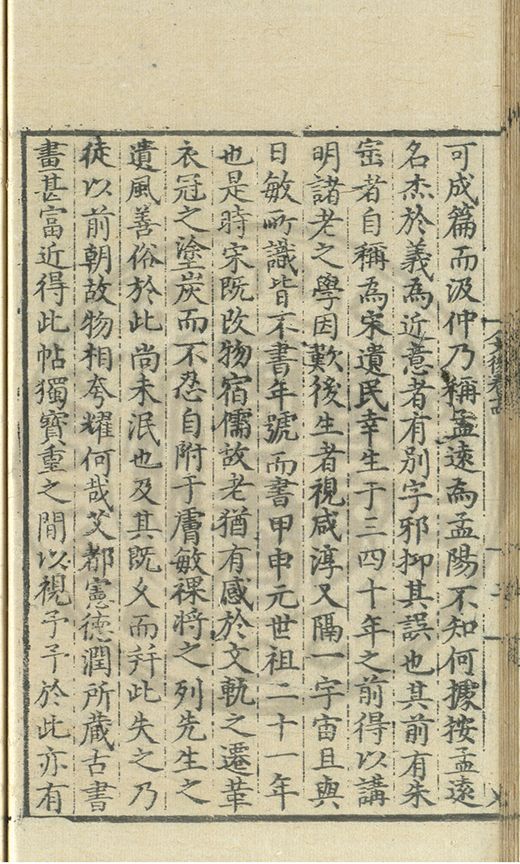 可成篇而汲仲乃稱孟遠為孟陽不知何據按孟遠
名杰於義為近意者有別字邪抑其誤也其前有朱
宻者自稱為宋遺民幸生于三四十年之前得以講
明諸老之學因歎後生者視咸淳又隔一宇宙且與
日敏所識皆不書年號而書甲申元世祖二十一年
也是時宋既改物宿儒故老猶有感於文軌之遷革
衣冠之塗炭而不忍自附于膚敏祼將之列先生之
遺風善俗於此尚未泯也及其既乆而并此失之乃
徒以前朝故物相夸耀何哉艾都憲德潤所蔵古書
畫甚富近得此帖獨寶重之間以視予予於此亦有